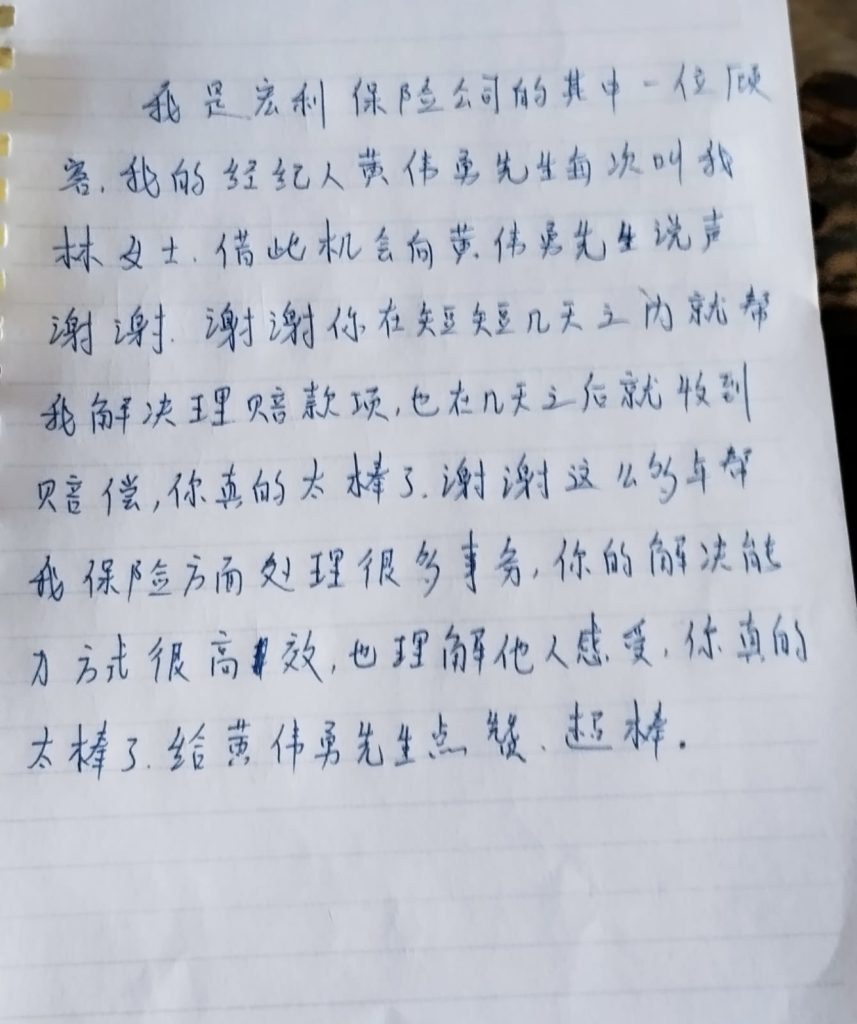 我是宏利保险公司的其中一位顾
客.我的经纪人黄伟勇先生每次叫我
林女士.借此机会向黄伟勇先生说声
谢谢.谢谢你在短短几天之内就帮
我解决理赔款项,也在几天之后就收到
赔偿,你真的太棒了.谢谢这么多年帮
我保险方面处理很多事务,你的解决能
力方式很高效,也理解他人感受.你真的
太棒了.给黄伟勇先生点赞.超棒.